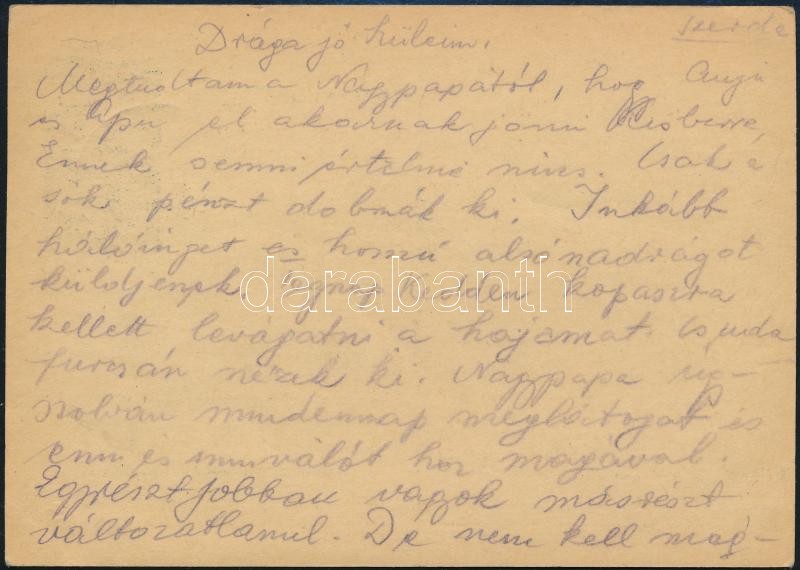 Szerda
Drága jó Szüleim!
Megtudtam a Nagypapától, hog Anyu
és Apu el akarnak jönni Kisberre,
Ennek semmi értelme nincs. Csak a
sok pénzt dobnák ki. Inkább
hálóinget es hosszú alsónadrágot
küldjenek. Tegnap Kedden kopaszra
kellett levágatni a hajamat. Csuda
furcsán nézek ki. Nagypapa úgy-
szolván mindennap meglátogat és
enni es innivalót hoz magával.
Egyrészt jobban vagyok másrészt
változatlanul. De nem kell meg-
darabanth